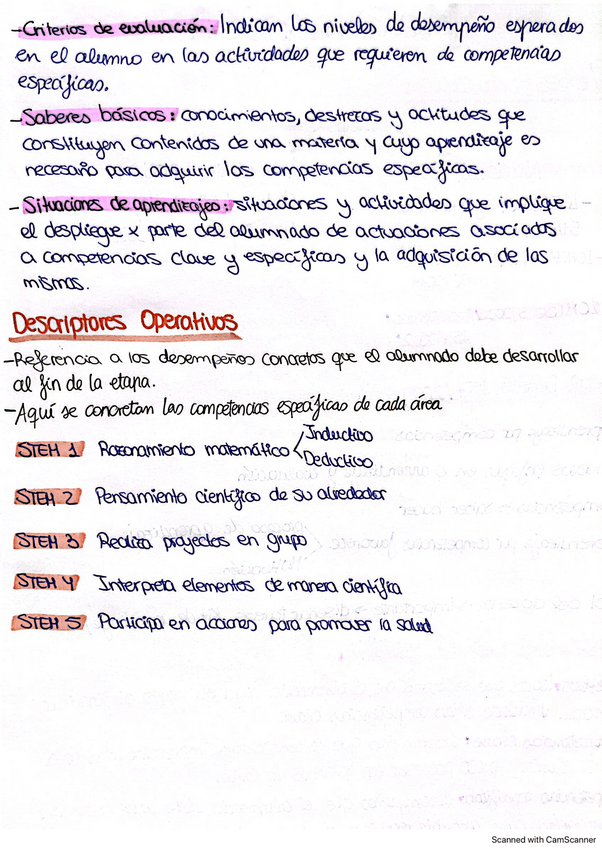 -Criterios de evaluación: Indican los niveles de desempeño esperados
en el alumno en las actividades que requieren de competencias
específicas.
-Saberes básicos: conocimientos, destrezas y actitudes que
constituyen contenidos de una materia y cuyo aprendizaje es
necesario para adquirir las competencias específicas.
- Situaciones de aprendizajes: situaciones y actividades que implique
el despliegue x parte del alumnado de actuaciones asociados
a competencias clave y específicas y la adquisición de las
mismas.
Descriptores Operativos
-Referencia a los desempeños concretos que el alumnado debe desarrollar
al fin de la etapa.
-Aquí se concretan las competencias específicas de cada área
STEM 1 Razonamiento matemático Inductivo
Deductivo
STEM 2 Pensamiento científico de su alrededor
STEM 3 Realiza proyectos en grupo
STEM 4 Interpreta elementos de manera científica
STEM 5 Participa en acciones para promover la salud
Scanned with CamScanner